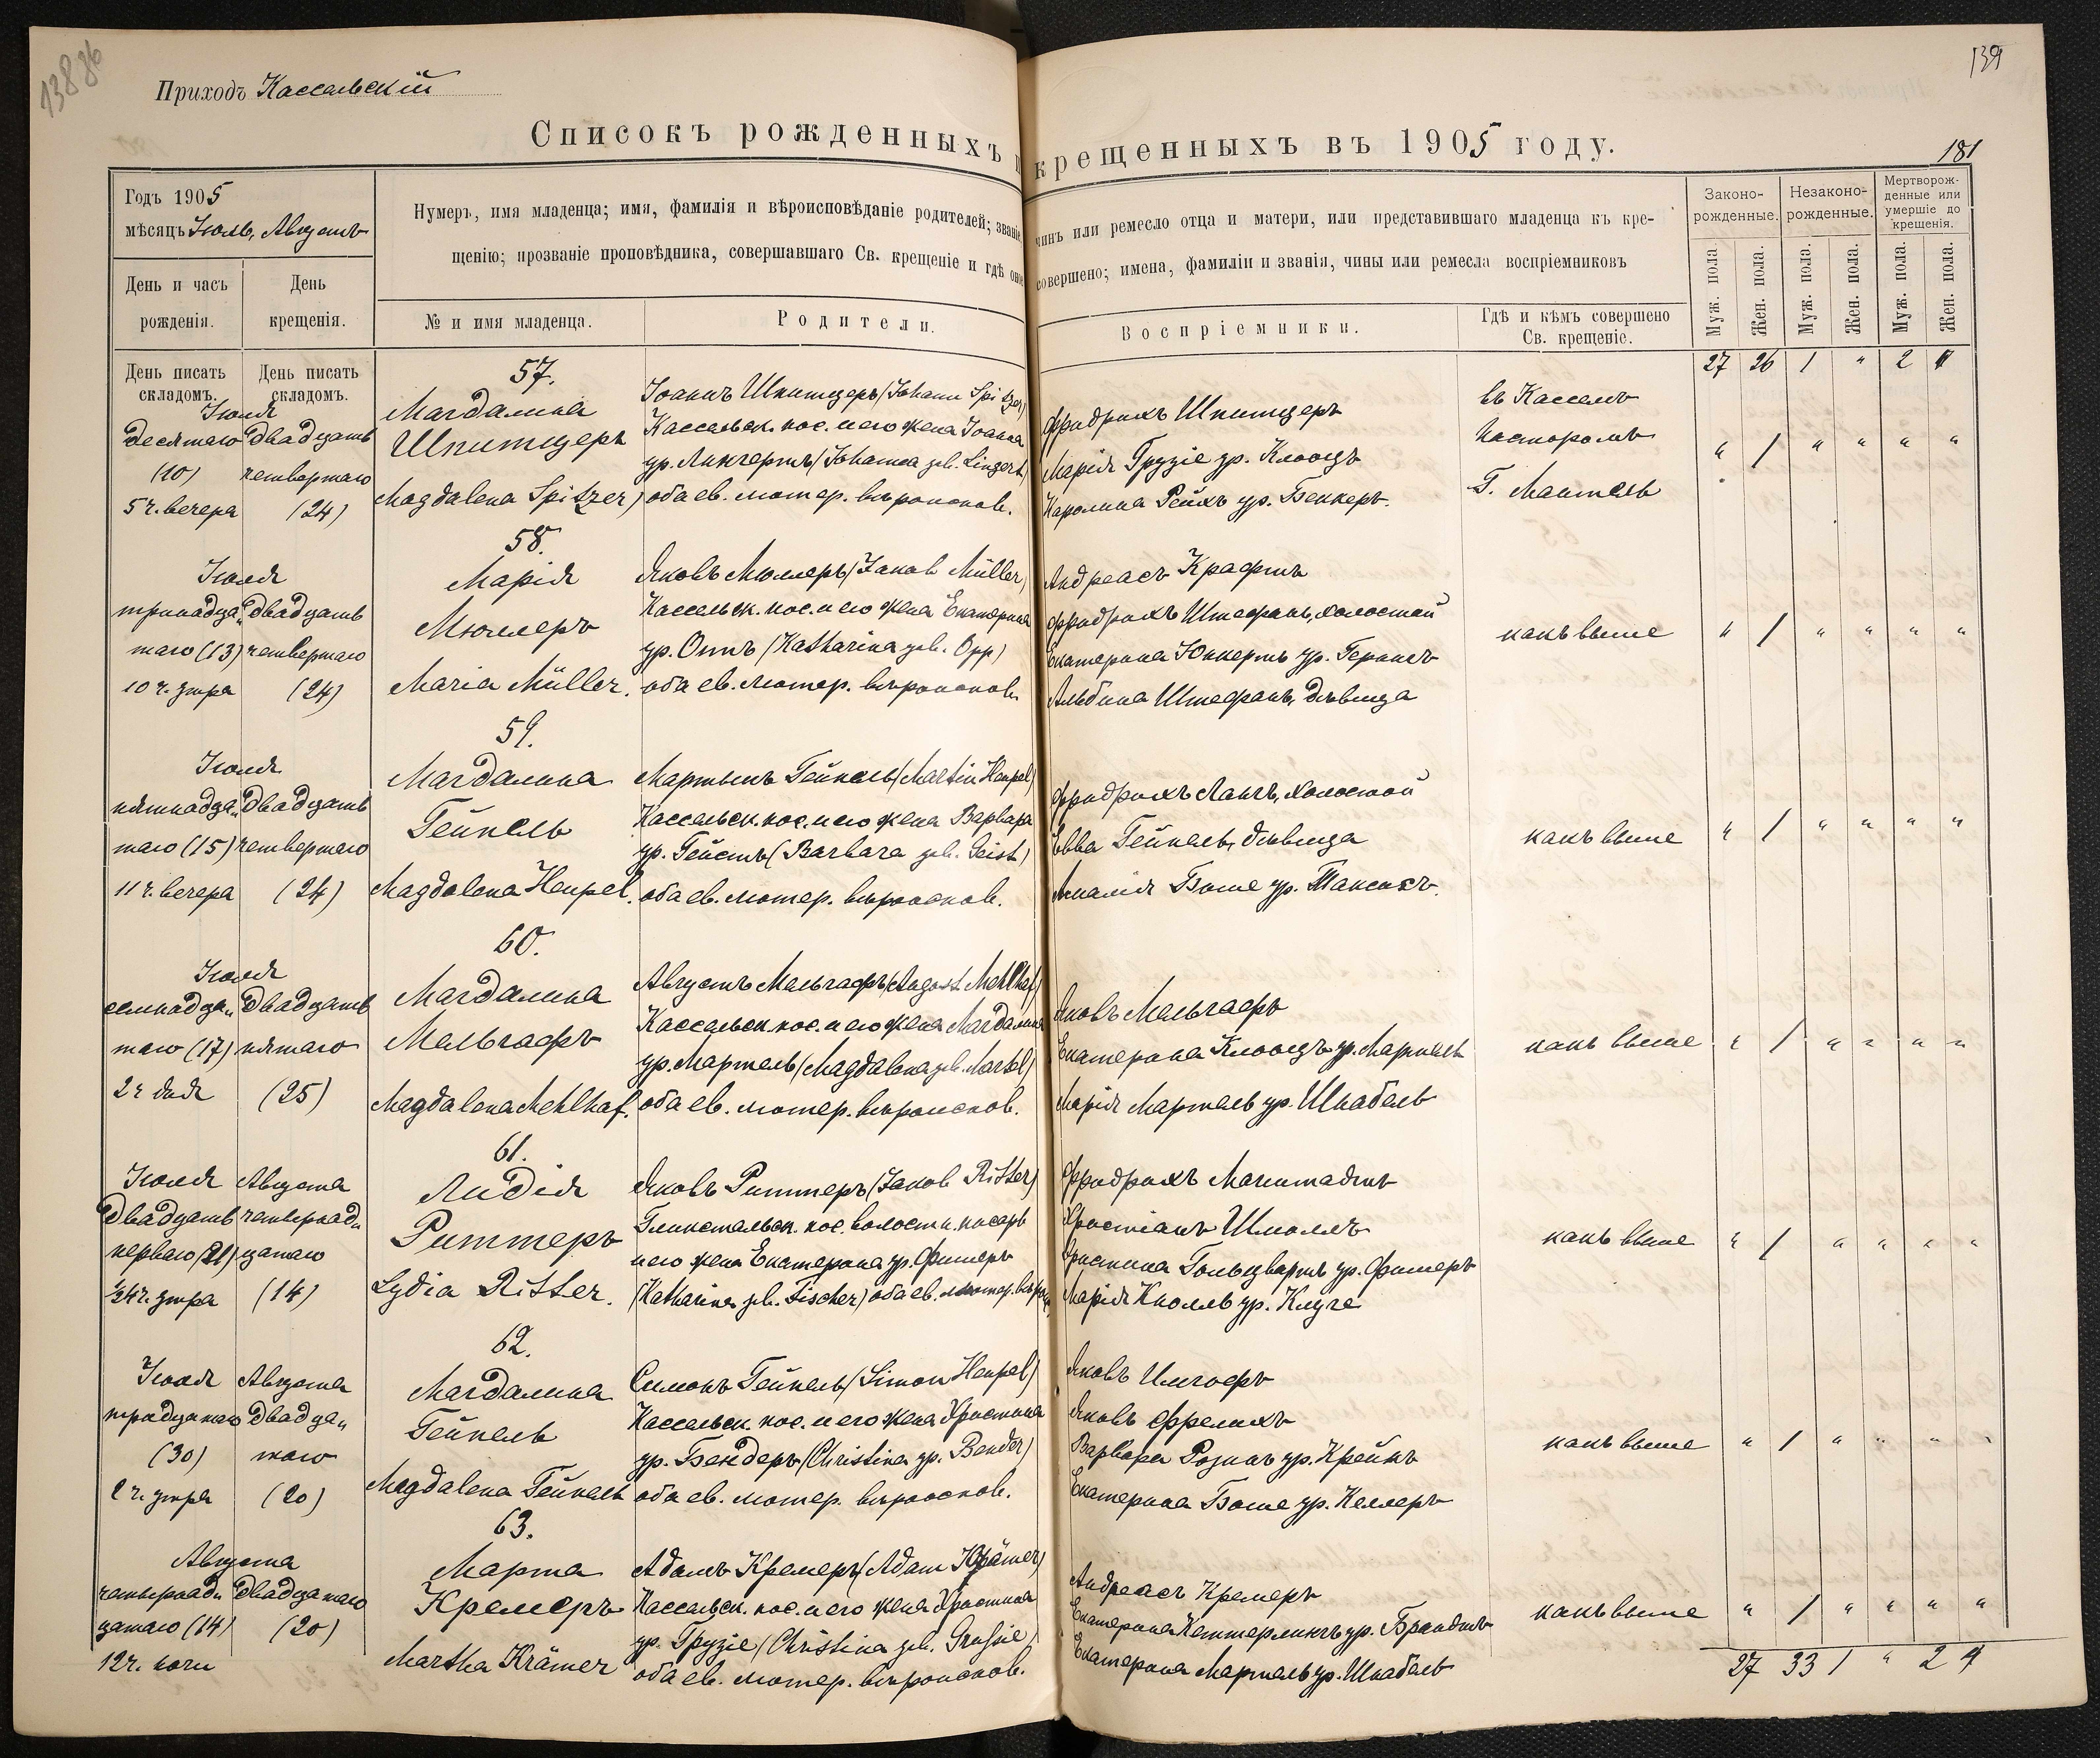 138 об
139
Приходъ Кассельскій
Списокъ рожденныхъ и крещенныхъ въ 1905 году.
181
Годъ 1905
мѣсяцъ Іюль, Августъ
Нумеръ, имя младенца; имя, фамилія и вѣроисповѣданіе родителей; званіе, чинъ или ремесло отца и матери, или представившаго младенца къ кре-
щенію; прозваніе проповѣдника, совершавшаго Св. крещеніе и гдѣ оное совершено; имена, фамиліи и званія, чины или ремесла воспріемниковъ
Законо-
рожденные.
Незаконо-
рожденные.
Мертворож-
денные или
умершіе до
крещенія.
День и часъ
рожденія.
День
крещенія.
№ и имя младенца.
Родители.
Воспріемники.
Гдѣ и кѣмъ совершено
Св. крещеніе.
Муж. пола
Жен. пола.
Муж. пола.
Жен. пола.
Муж. пола.
Жен. пола.
День писать
складомъ.
День писать
складомъ.
27 26 1 " 2 4
57.
Іюля
десятаго
(10)
5 ч. вечера
двадцать
четвертаго
(24)
Магдалина
Шпитцеръ
Magdalena Spitzer)
Іоаннъ Шпитцеръ (Johann Spitzer)
Кассельск. пос. и его жена Іоанна
ур. Лингертъ (Johanna geb. Lingert)
оба ев. лютер. вѣроисповѣ.
Фридрихъ Шпитцеръ
Марія Грузіе ур. Клоотцъ
Каролина Рейхъ ур. Беккеръ.
въ Касселѣ
Пасторомъ
Г. Мантель
" / " " " "
58.
Іюля
тринадца„
таго (13)
10 ч. утра
двадцать
четвертаго
(24)
Марія
Мюллеръ
Maria Müller.
Яковъ Мюллеръ (Jakob Müller)
Кассельск. пос. и его жена Екатерина
ур. Оппъ (Katharina geb. Opp)
оба ев. лютер. вѣроисповѣ.
Андреасъ Крафтъ
Фридрихъ Штефанъ, холостой
Екатерина Юккертъ ур.
Альбина Штефанъ, дѣвица
какъ выше
" / " " " "
59.
Іюля
пятнадца„
таго (15)
11 ч. вечера
двадцать
четвертаго
(24)
Магдалина
Гейпель
Magdalena Heupel.
Мартынъ Гейпель (Martin Heupel)
Кассельск. пос. и его жена Варвара
ур. Гейстъ (Barbara geb. Geist)
оба ев. лютер. вѣроисповѣ.
Фридрихъ Лангъ, холостой
Евва Гейпель, дѣвица
Амалія Боше ур.
какъ выше
" / " " " "
60.
Іюля
семнадца„
таго (17)
2 ч дня
двадцать
пятаго
(25)
Магдалина
Мельгафъ
Magdalena Mehlhaf.
Августъ Мельгафъ (August Mehlhaf)
Кассельск. пос. и его жена Магдалина
ур. Мартель (Magdalena geb. Martel)
оба ев. лютер. вѣроисповѣ.
Яковъ Мельгафъ
Екатерина Клоотцъ ур. Мартель
Марія Мартель ур. Шнабель
какъ выше
" / " " " "
61.
Іюля
двадцать
перваго (21)
½4 ч. утра
Августа
четырнад„
цатаго
(14)
Лидія
Риттеръ
Lydia Ritter.
Яковъ Риттеръ (Jakob Ritter)
Глюкстальск. пос. волостн. писарь
и его жена Екатерина ур. Фишеръ
(Katharina geb. Fischer) оба ев. лютер. вѣроис.
Фридрихъ Магштадтъ
Христіанъ Шмоллъ
Христина Гольцвартъ ур. Фишеръ
Марія Кноллъ ур. Клуге
какъ выше
" / " " " "
62.
Іюля
тридцатаго
(30)
2 ч. утра
Августа
двадца„
таго
(20)
Магдалина
Гейпель
Magdalena Гейпель
Симонъ Гейпель (Simon Heupel)
Кассельск. пос. и его жена Христина
ур. Бендеръ (Christina ур. Bender)
оба ев. лютер. вѣроисповѣ.
Яковъ Имгофъ
Яковъ Фрелихъ
Варвара ур. Крейнъ
Екатерина Боше ур. Келлеръ
какъ выше
" / " " " "
63.
Августа
четырнад„
цатаго (14)
12 ч. ночи
двадцатаго
(20)
Марта
Кремеръ
Martha Krämer
Адамъ Кремеръ (Adam Krämer)
Кассельск. пос. и его жена Христина
ур. Грузіе (Christina geb. Grusie)
оба ев. лютер. вѣроисповѣ.
Андреасъ Кремеръ
Екатерина Кеттерлингъ ур. Брандтъ
Екатерина Мартель ур. Шнабель
какъ выше
" / " " " "
27 33 1 " 2 4